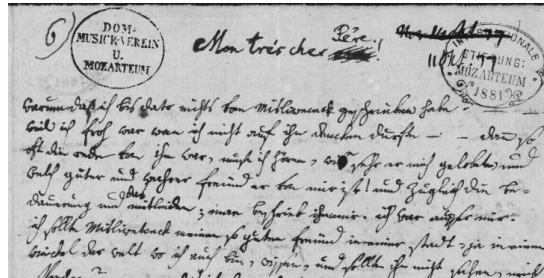 6)
DOM-
MUSICK-VEREIN
U.
MOZARTEUM
Mon trés cher Pére!
11 Okt 77
INTERNATIONALE
STIFTUNG:
MOZARTEUM
1881
warum daß ich bis dato nichts von Misliwenck geschrieben habe
weil ich froh war wan ich nicht auf ihn dencken durfte — — dan so
oft die rede von ihm war, muste ich hören, wie sehr er mich gelobt, und
welch guter und wahrer freund er von mir ist! und zugleich die be-
dauerung und das mitleiden; man beschrieb ihn mir. ich war ausser mir.
ich sollte Misliwetceck meinen so guten freund in einer stadt, ja in einem
winckel der welt wo ich auch bin, wissen, und sollte ihn nicht sehen, nicht